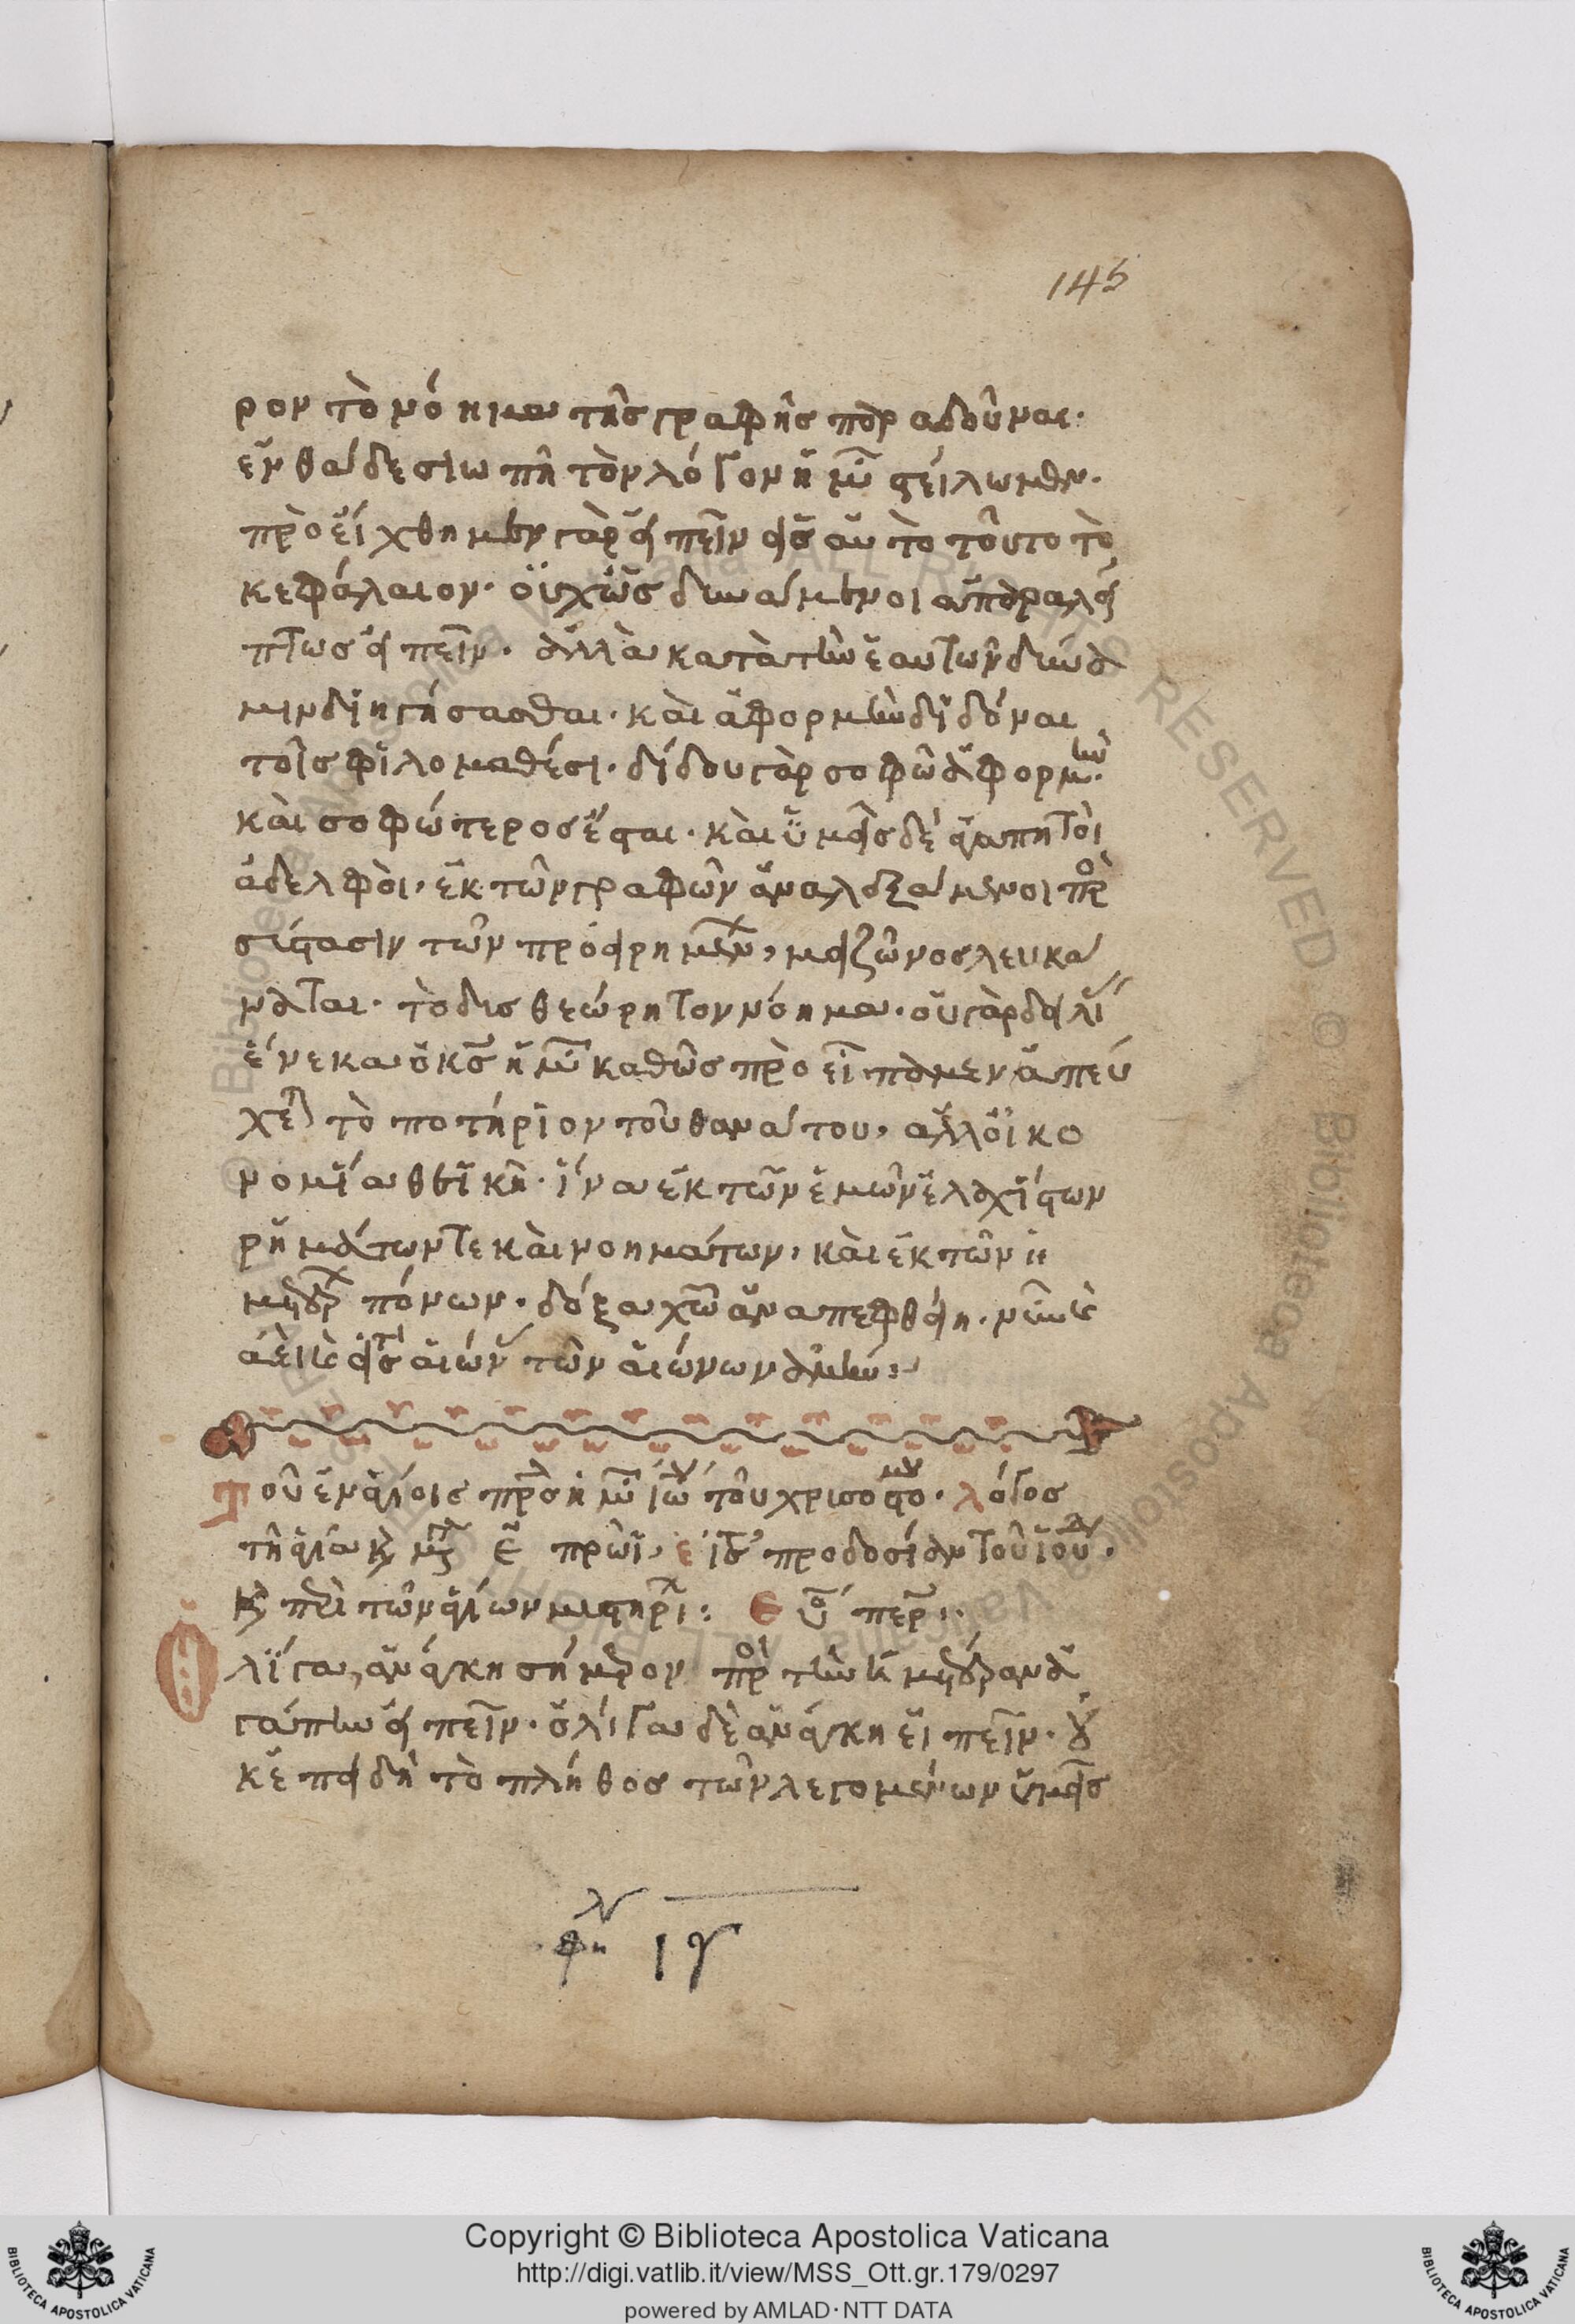 145
ρον τὸ νόημα τῆς γραφῆς παραδοῦναι.
ἐνθάδε σιωπῆ τὸν λόγον ἡμῖν στείλωμεν.
προσήχθημεν γὰρ εἰπεῖν εἰς αὐτὸ τοῦτο τὸ
κεφάλαιον. οὐχ ὡς δυνάμενοι ἀπαραλεί
πτως εἰπεῖν. ἀλλὰ κατὰ τὴν ἑαυτῶν δύνα
μιν διηγήσασθαι. καὶ ἀφορμὴν διδόναι
τοῖς φιλομαθέσι. δίδου γὰρ σοφῶ ἀφορμήν.
καὶ σοφώτερος ἔσται. καὶ ὑμεῖς δὲ ἀγαπητοὶ
ἀδελφοὶ, ἐκ τῶν γραφῶν ἀναλεξάμενοι πρὸ
σύστασιν τῶν προειρημένων, μειζώνος λευκα
νεται. τὸ δισθεώρητον νόημα. οὐ γὰρ δειλί
ἕνεκα ὁ κς ἡμῶν καθὼς προείπομεν ἀπεύ
χεται τὸ ποτήριον τοῦ θανάτου, ἀλλ' οἰκο
νομία θεϊκῆ. ἵνα ἐκ τῶν ἐμῶν ἐλαχίστων
ρημάτων τε καὶ νοημάτων, καὶ ἐκ τῶν ἡ
μετέρων πόνων. δόξα χω ἀναπεμφθείη. νῦν καὶ
ἀεὶ καὶ εἰς τοὺς αἰῶνας τῶν αἰώνων ἀμήν:
Τοῦ ἐν ἁγίοις πρς ἡμῶν ἰω τοῦ χρυσοστόμου. λόγος
τῆ ἁγία καὶ μεγάλη ε πρωῒ, εἰς προδοσίαν τοῦ ἰούδα.
καὶ περὶ τῶν ἁγίων μυστηρίων: εὐ περ.
Ὀλίγα, ἀνάγκη σήμερον πρὸς τὴν ὑμετέραν ἀ
γάπην εἰπεῖν. ὀλίγα δὲ ἀνάγκη εἰπεῖν. οὐ
κ ἐπειδὴ τὸ πλῆθος τῶν λεγομένων ὑμεῖς
φυλ ιγ
Copyright © Biblioteca Apostolica Vaticana
http://digi.vatlib.it/view/MSS_Ott.gr.179/0297
powered by AMLAD·NTT DATA